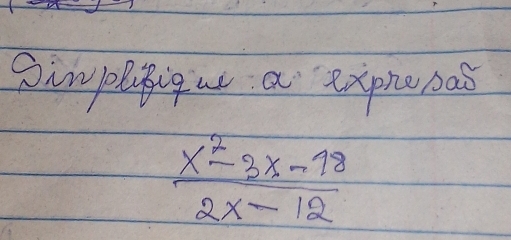 Sinplifique a expresaõ
x² - 3x - 18
2x - 12